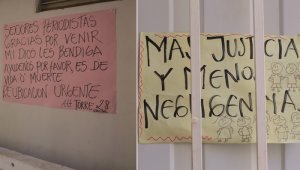 SEÑORES PERIODISTAS
GRACIAS POR VENIR
MI DIOS LES BENDIGA
AYUDENOS POR FAVOR, ES DE
VIDA O MUERTE
REUBICACION URGENTE
TORRE 28
MAS JUSTICIA
Y MENOS
NEGLIGENCIA